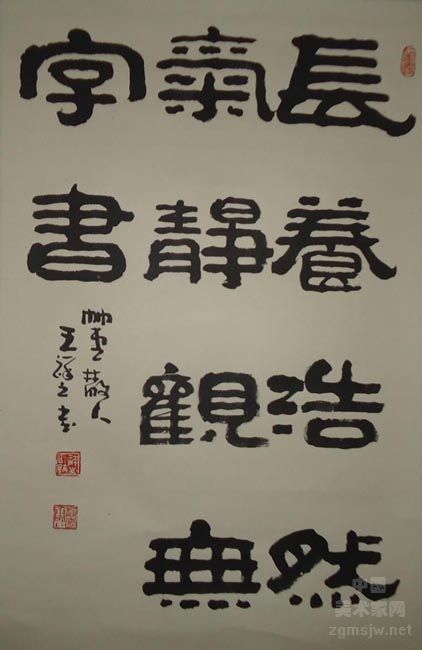 長養浩然
氣靜觀無
字書
散人
王祥之书
中国
美术家网
zgmsjw.net